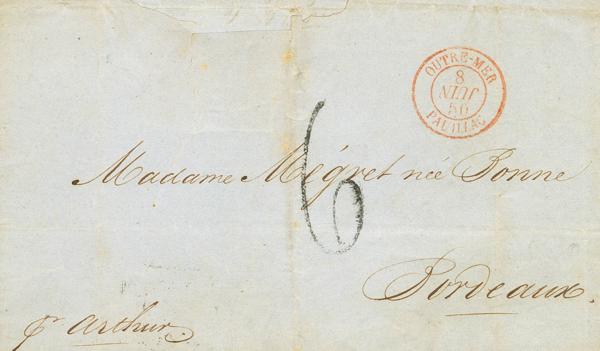 OUTRE-MER
8
JUIN
50
PAUILLAC
6
Madame Mégret née Bonne
Bordeaux.
pr Arthur